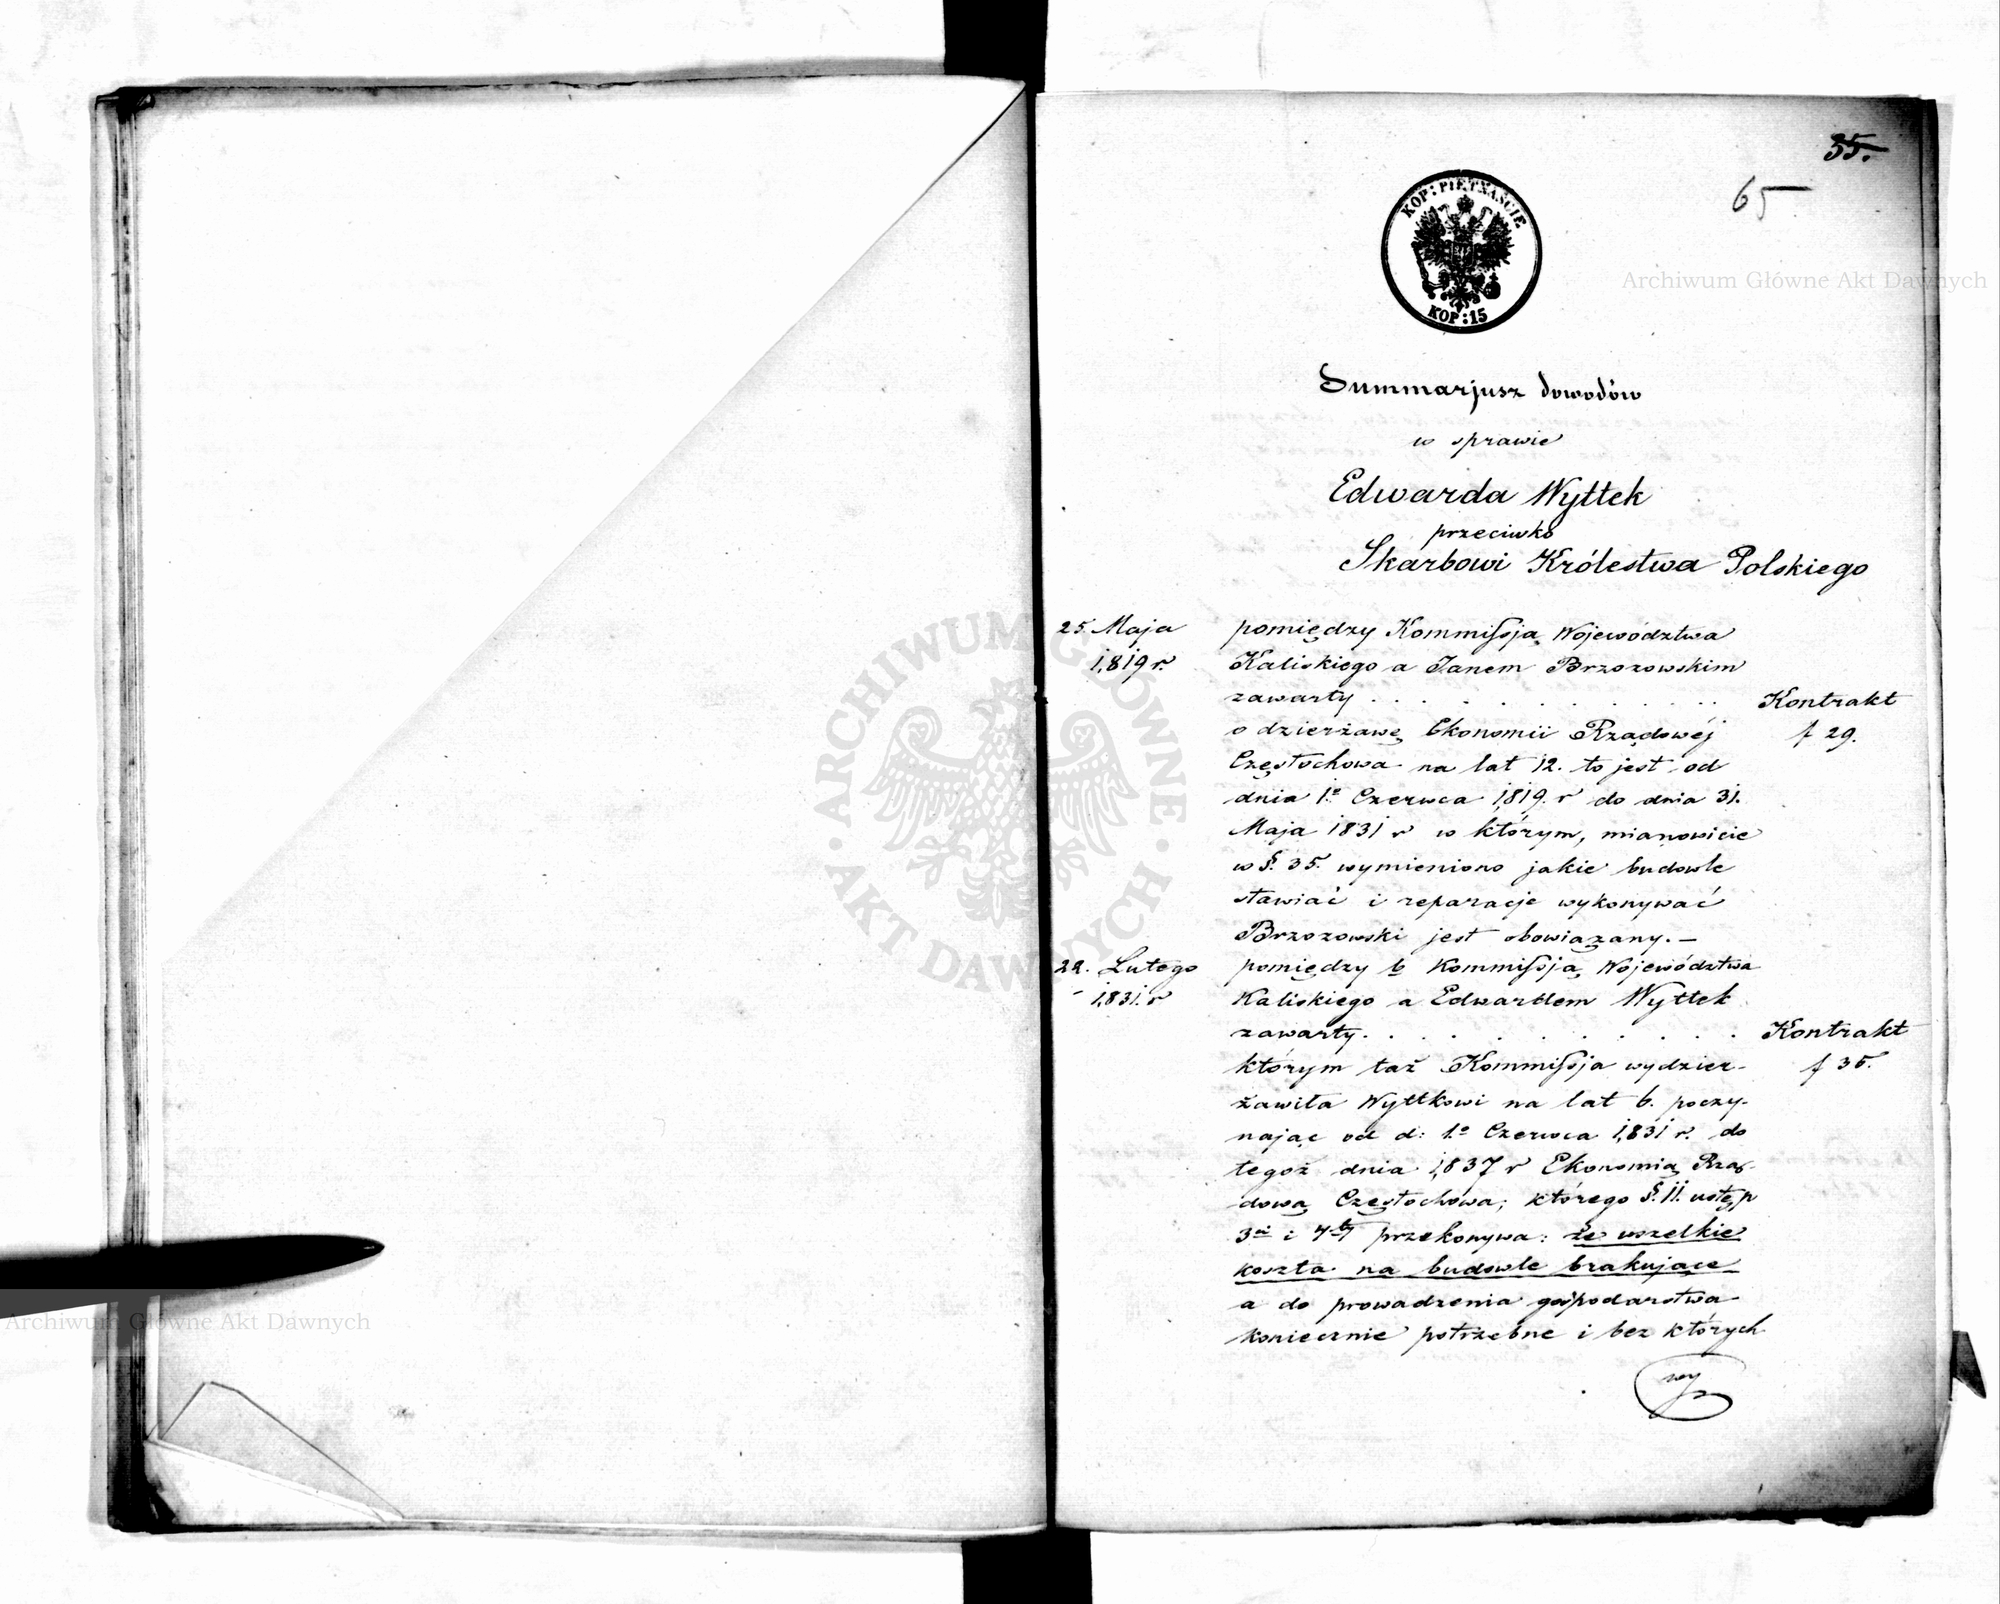 35.
65
KOP: PIĘTNAŚCIE
KOP: 15
Summarjusz dowodów
w sprawie
Edwarda Wyttek
przeciwko
Skarbowi Królestwa Polskiego
25. Maja 1819 r.
pomiędzy Kommissją Województwa
Kaliskiego a Janem Brzozowskim
zawarty . . . . . . . . . . . . Kontrakt
o dzierżawę Ekonomii Rządowéj f 29.
Częstochowa na lat 12. to jest od
dnia 1.º Czerwca 1819. r do dnia 31.
Maja 1831 r w którym, mianowicie
w §. 35. wymieniono jakie budowle
stawiać i reparacje wykonywać
Brzozowski jest obowiązany. —
22. Lutego 1831. r
pomiędzy b Kommissją Województwa
Kaliskiego a Edwardem Wyttek
zawarty . . . . . . . . . . . . Kontrakt
którym taż Kommissja wydzier- f 35.
żawiła Wyttkowi na lat 6. poczy-
nając od d: 1.º Czerwca 1831 r. do
tegoż dnia 1837 r Ekonomią Rzą-
dową Częstochowa; którego §. 11. ustęp
3ci i 4ty przekonywa: że wszelkie
koszta na budowle brakujące
a do prowadzenia gospodarstwa
koniecznie potrzebne i bez których
Archiwum Główne Akt Dawnych
ARCHIWUM GŁÓWNE
AKT DAWNYCH
Archiwum Główne Akt Dawnych